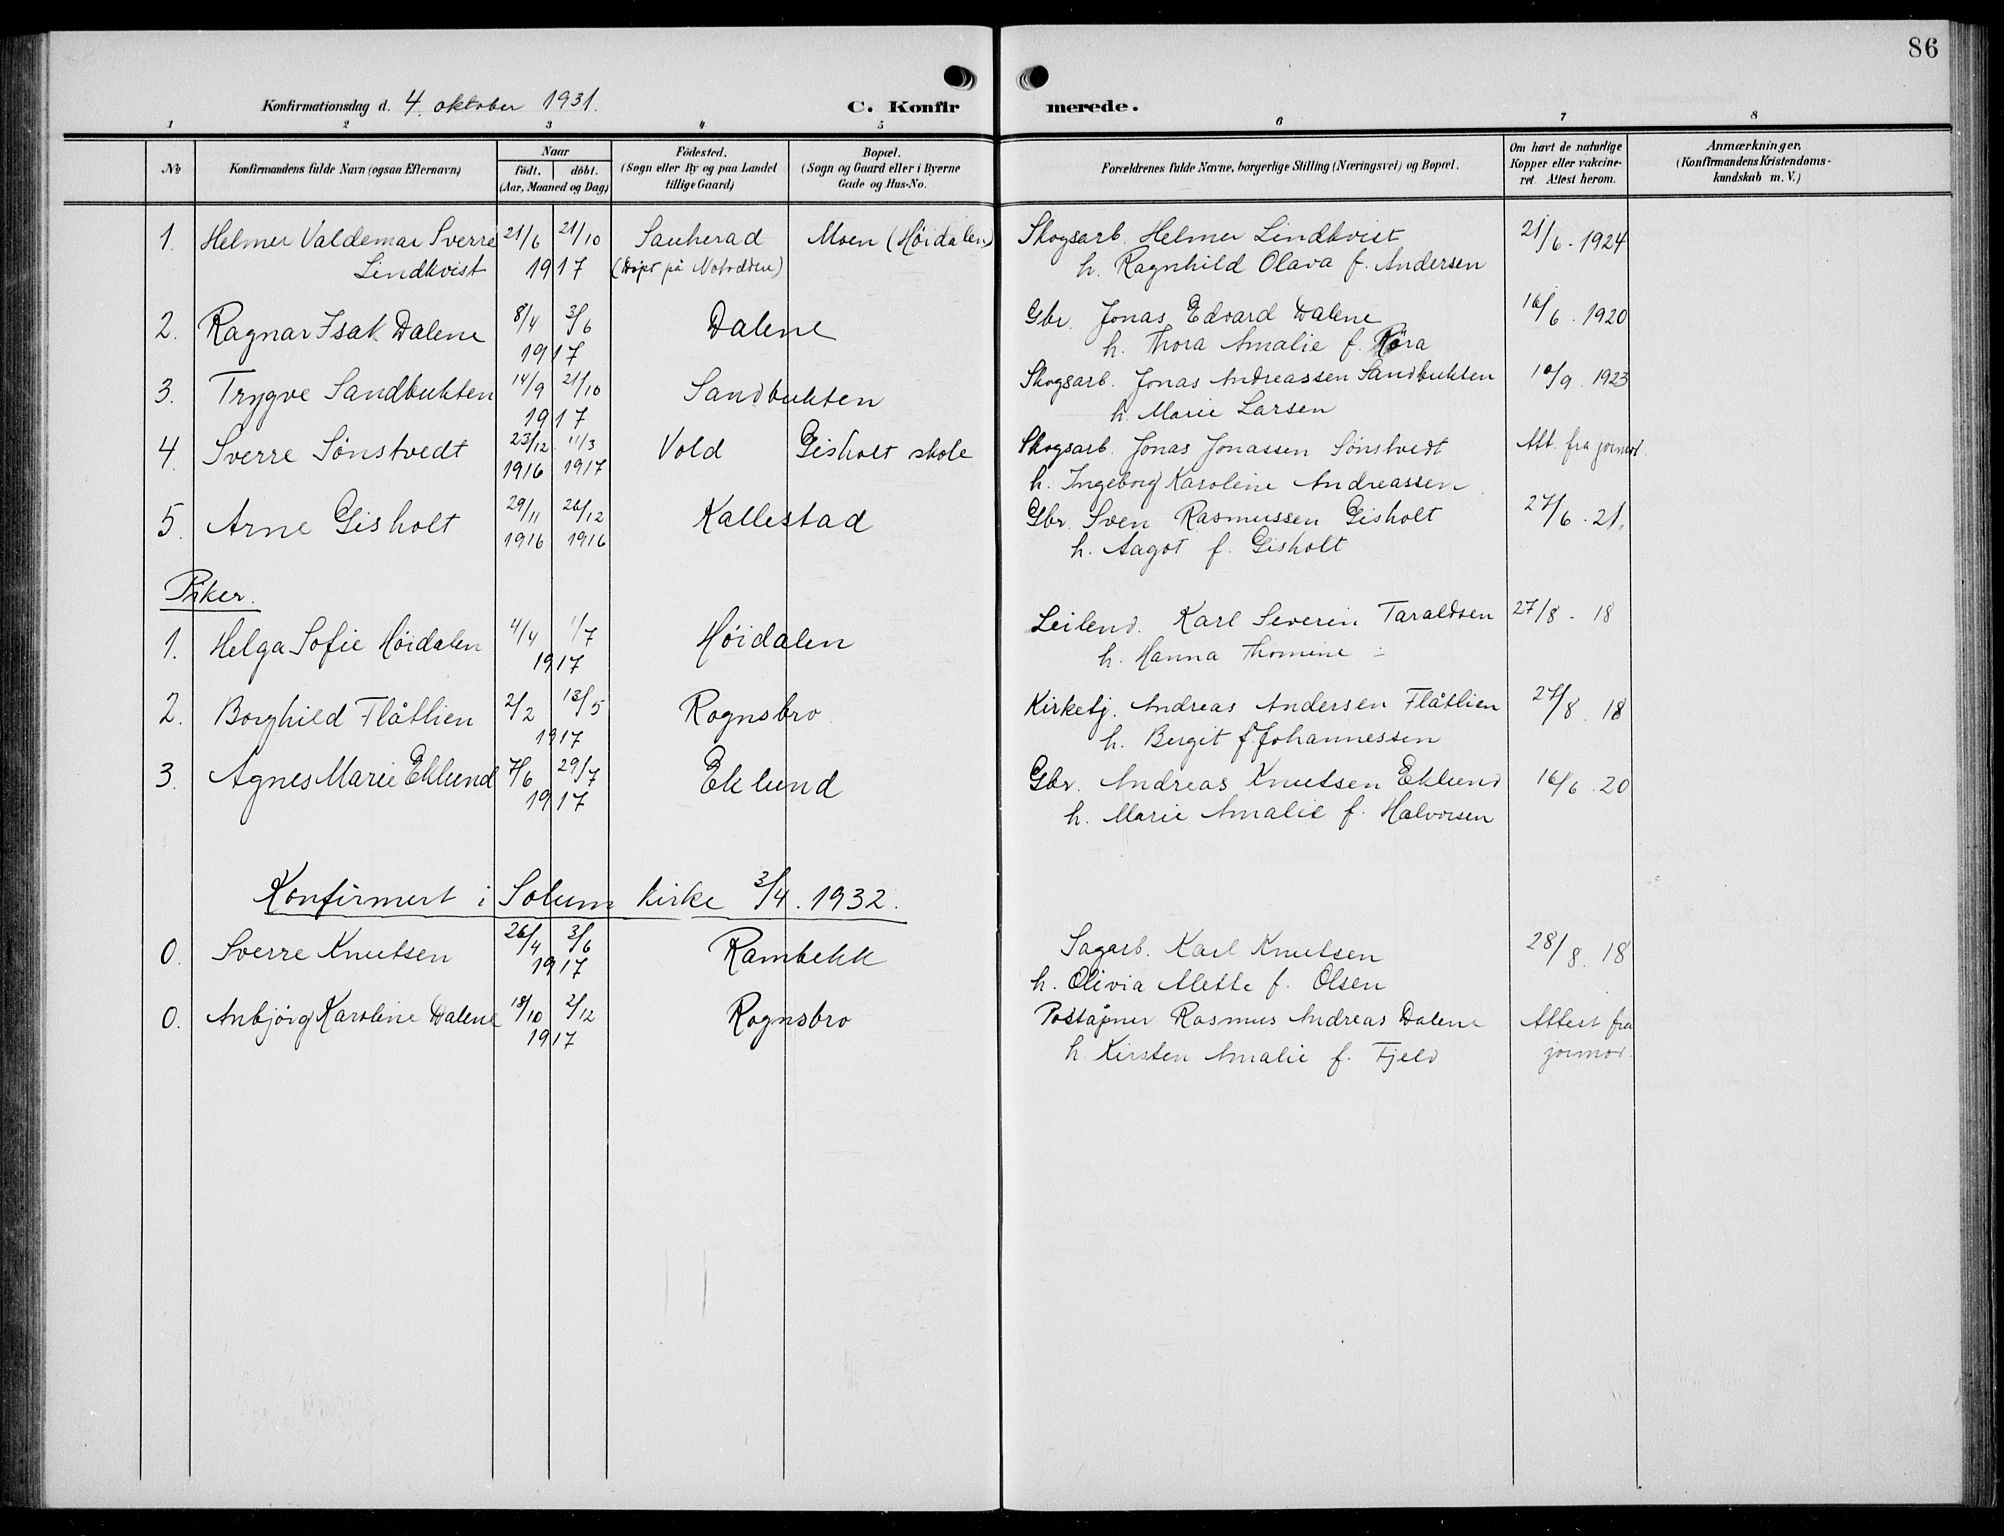 86
Konfirmationsdag d. 4. oktober 1931.
C. Konfirmerede.
1 2 3 4 5 6 7 8
No
Konfirmandens fulde Navn (ogsaa Efternavn)
Naar
födt. döbt.
(Aar, Maaned og Dag)
Födested.
(Sogn eller By og paa Landet
tillige Gaard)
Bopæl.
(Sogn og Gaard eller i Byerne
Gade og Hus-No.
Forældrenes fulde Navne, borgerlige Stilling (Næringsvei) og Bopæl.
Om havt de naturlige
Kopper eller vakcine-
ret. Attest herom.
Anmærkninger.
(Konfirmandens Kristendoms-
kundskab m. V.)
1. Helmer Valdemar Sverre 21/6 21/10 Sauherad Moen (Høidalen) Skogsarb. Helmer Lindkvist 21/6 - 1924
Lindkvist 1917 (Døpt på Notodden) h. Ragnhild Olava f. Andersen
2. Ragnar Isak Dalene 8/4 3/6 Dalene Gbr. Jonas Edvard Dalene 16/6 . 1920
1917 h. Thora Amalie f. Røra
3. Trygve Sandbukten 14/9 21/10 Sandbukten Skogsarb. Jonas Andreassen Sandbukten 10/9 . 1923
1917 h. Marie Larsen
4. Sverre Sønstvedt 23/12 11/3 Vold Gisholt skole Skogsarb. Jonas Jonassen Sønstvedt Att. fra jormod.
1916 1917 h. Ingeborg Karoline Andreassen
5. Arne Gisholt 29/11 26/12 Kallestad Gbr. Sven Rasmussen Gisholt 27/6 . 21.
1916 1916 h. Aagot f. Gisholt
Piker.
1. Helga Sofie Høidalen 4/4 1/7 Høidalen Leilend. Karl Severin Taraldsen 27/8 - 18
1917 h. Hanna Thomine -
2. Borghild Flåtlien 2/2 13/5 Rognsbro Kirketj. Andreas Andersen Flåtlien 27/8 . 18
1917 h. Bergit f. Johannessen
3. Agnes Marie Eklund 7/6 29/7 Eklund Gbr. Andreas Knutsen Eklund 16/6 . 20
1917 h. Marie Amalie f. Halvorsen
Konfirmert i Solum kirke 3/4 . 1932.
0. Sverre Knutsen 26/4 3/6 Rambekk Sagarb. Karl Knutsen 28/8 . 18
1917 h. Olivia Alette f. Olsen
0. Anbjørg Karoline Dalene 18/10 2/12 Rognsbro Poståpner Rasmus Andreas Dalene Attest fra
1917 h. Kirsten Amalie f. Fjeld jormod.